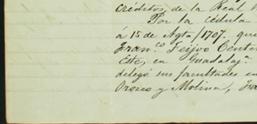 Créditos, de la Real
Por la cédula
á 15 de Agto, 1707, que
Franco. Feijóo Cente
Este, en Guadalaja
delegó sus facultades en
Orozco y Molina, Fra